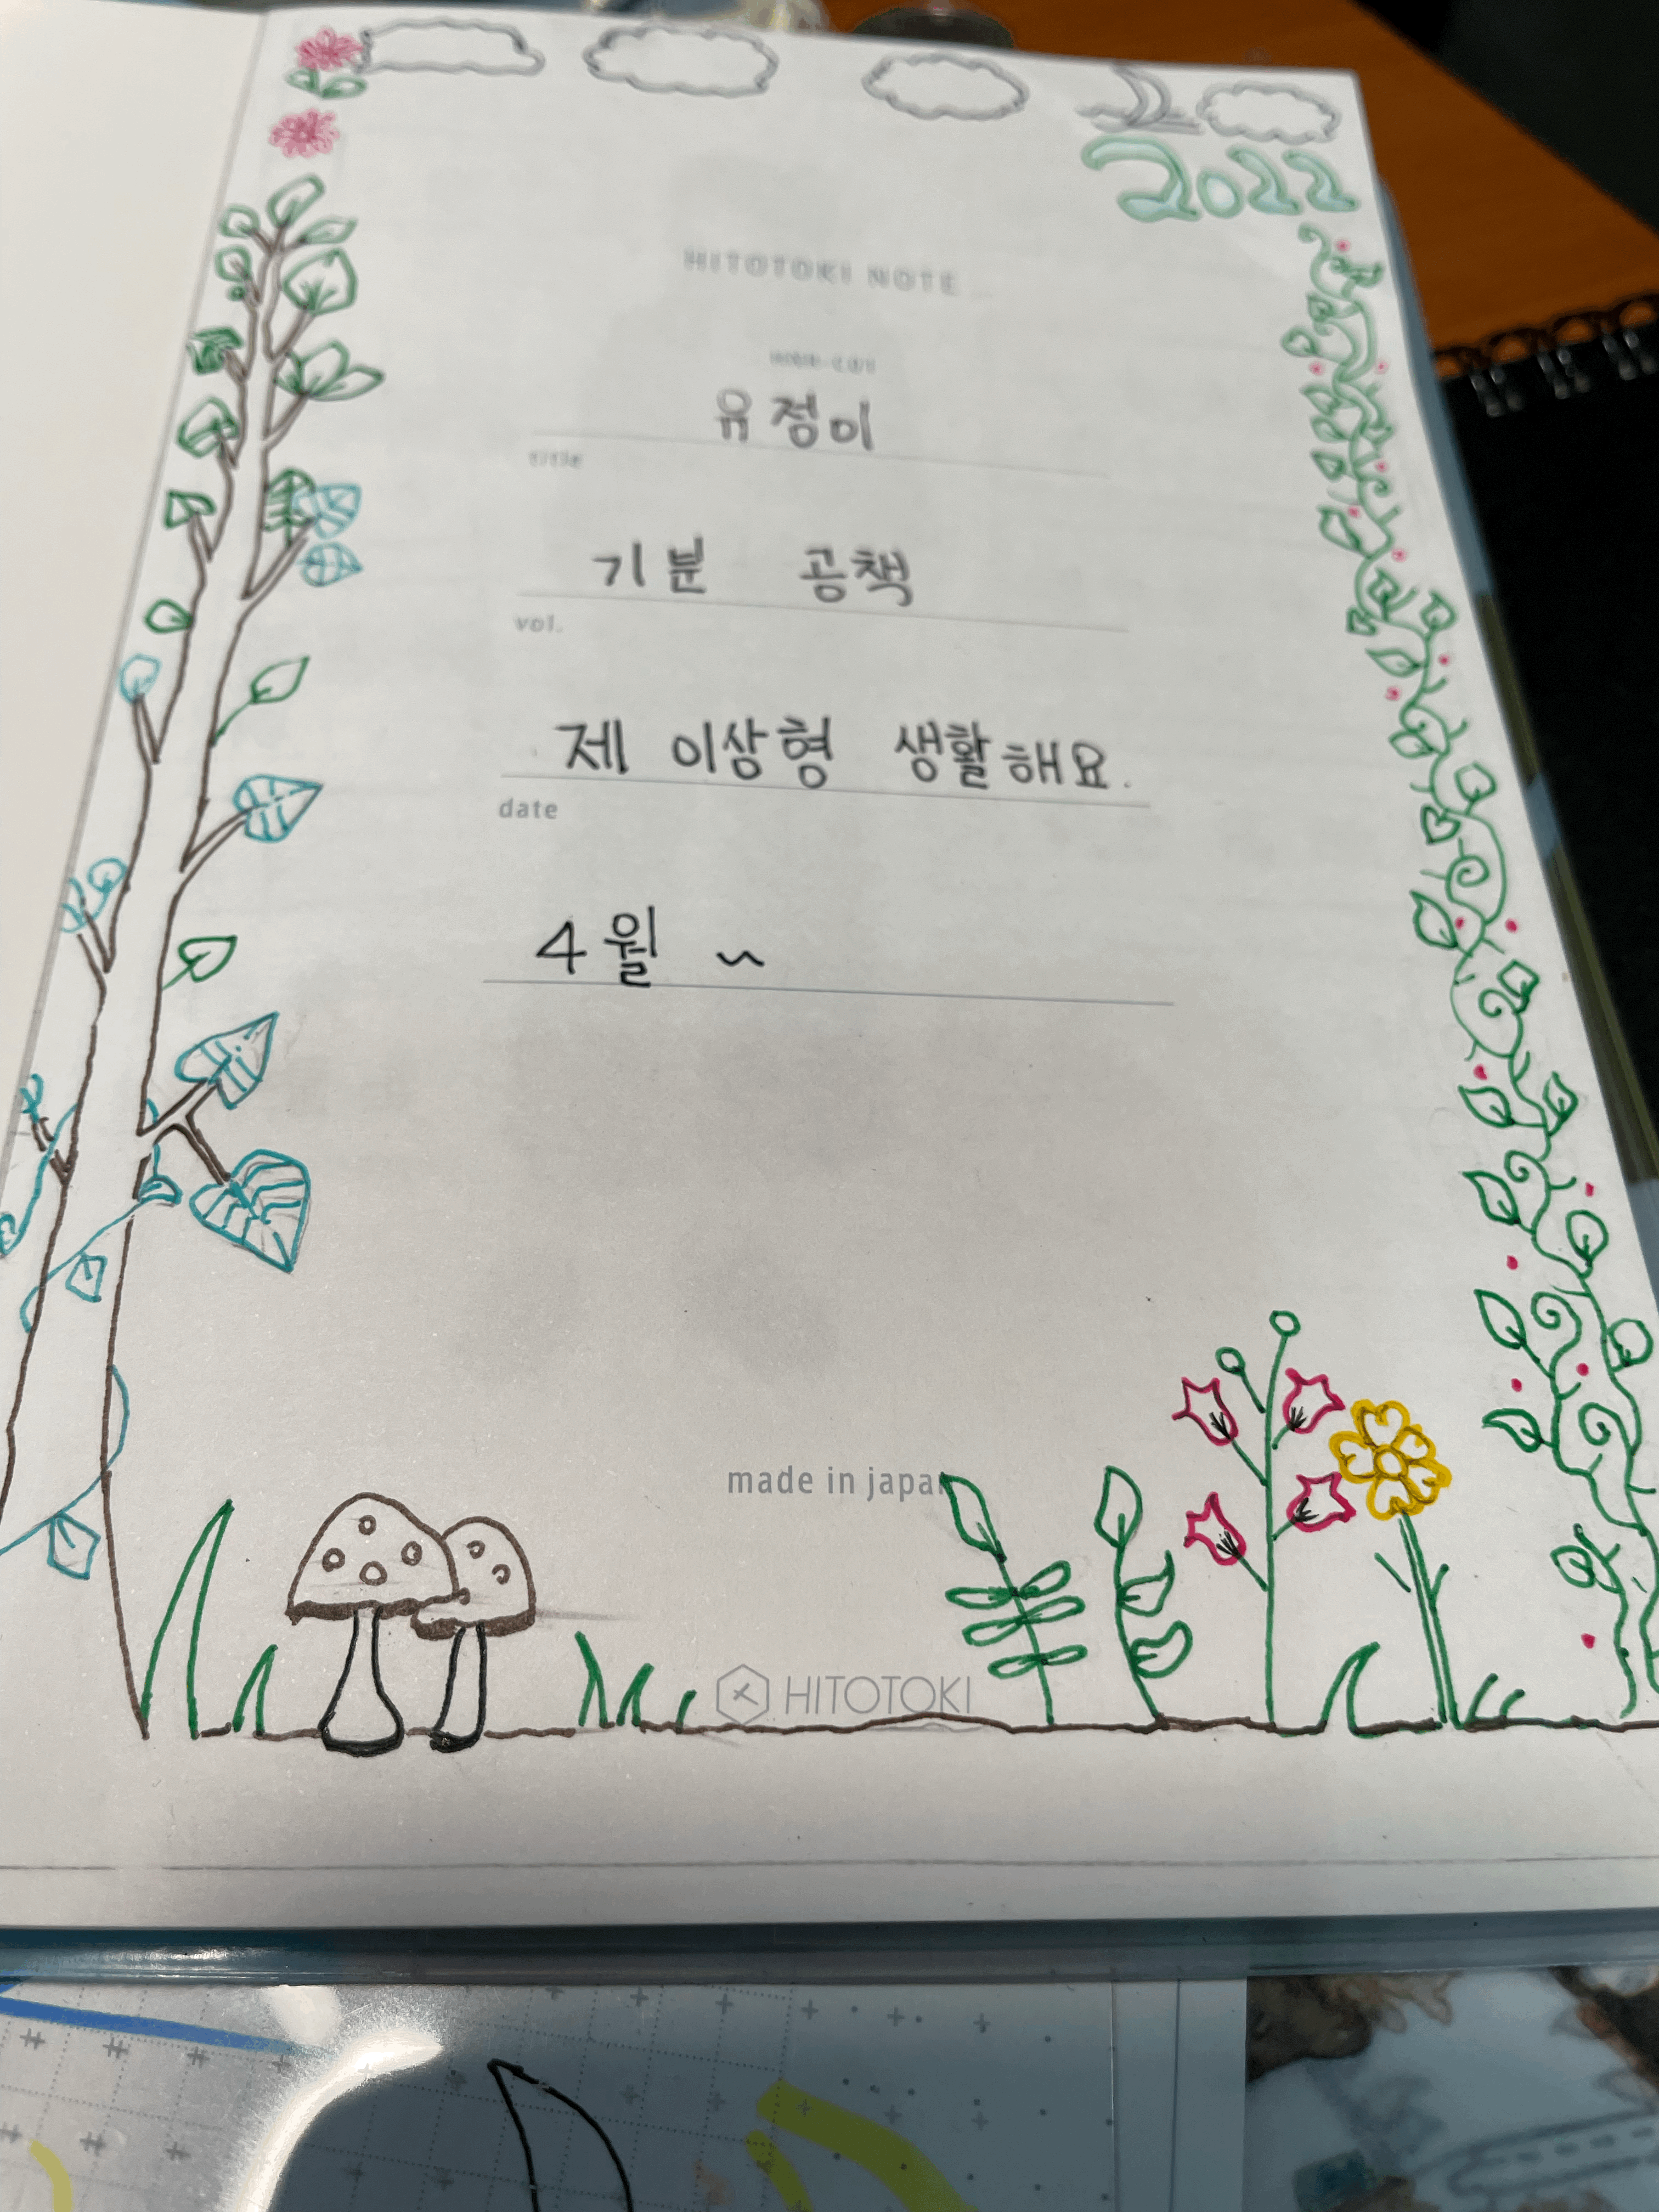 2022
HITOTOKI NOTE
유정이
title
기분 공책
vol.
제 이상형 생활해요.
date
4월 ~
made in japa
HITOTOKI